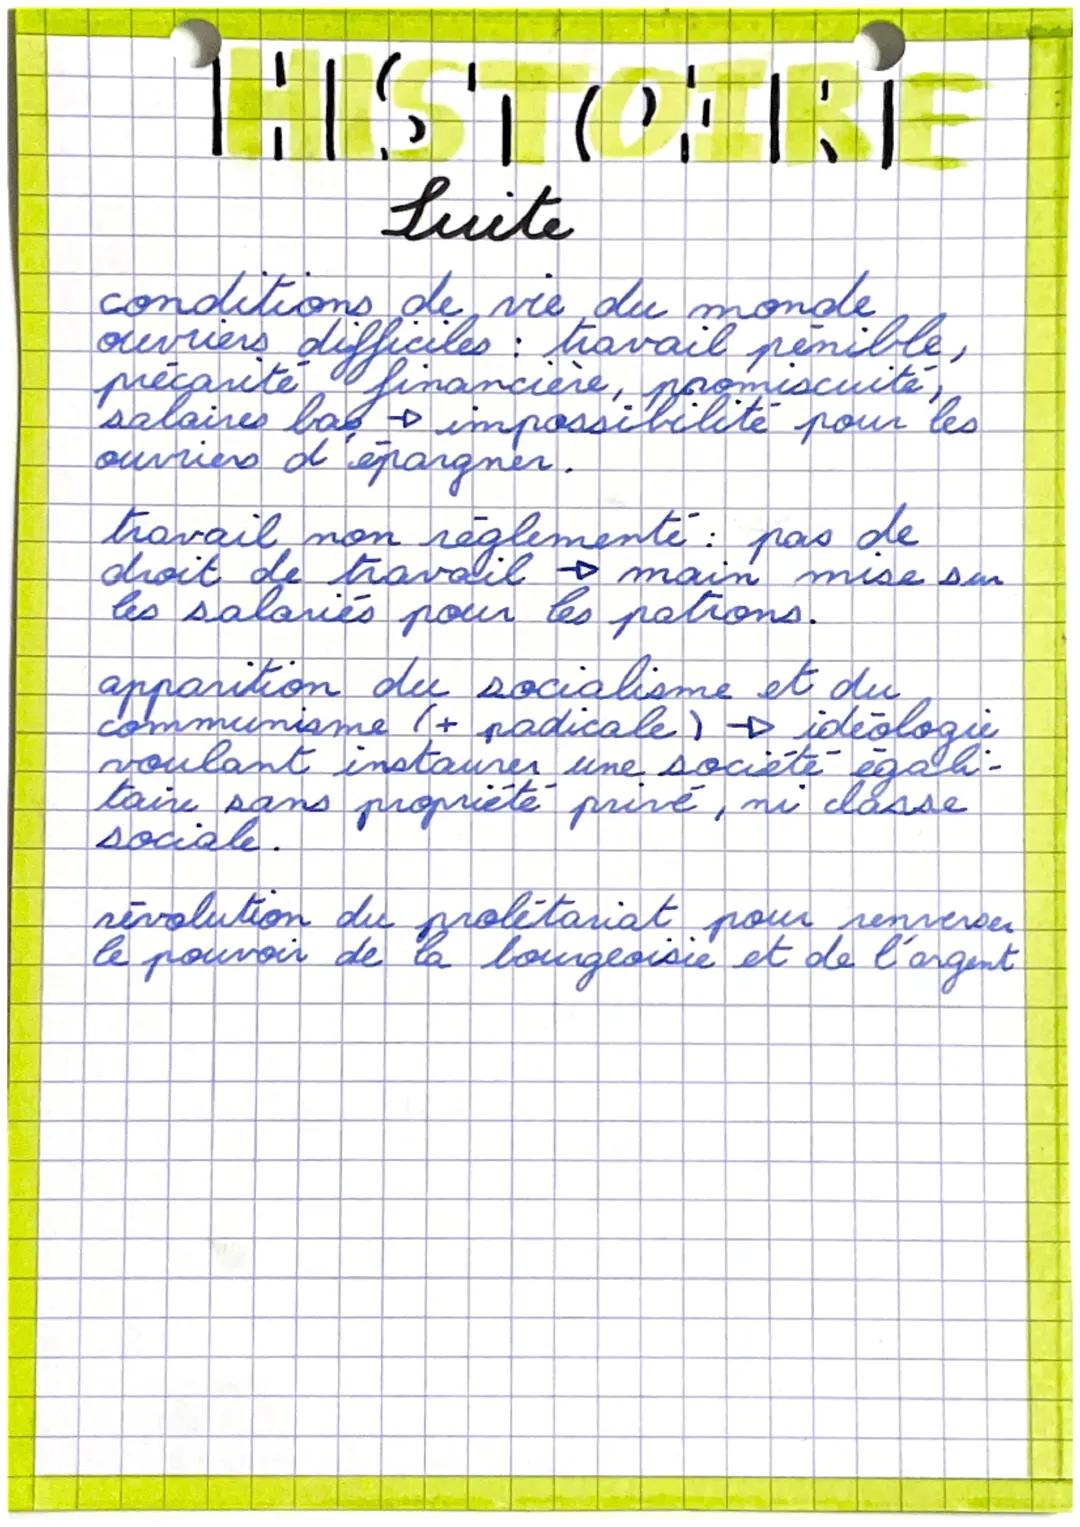 HISTOIRE
Suite
conditions de vie du monde
ouvriers difficiles : travail pénible,
précarité financière, promiscuité,
salaires bas → impossibilité pour les
ouvriers d'épargner.
travail non réglementé : pas de
droit de travail → main mise sur
les salariés pour les patrons.
apparition du socialisme et du
communisme (+ radicale) → idéologie
voulant instaurer une société égali-
taire sans propriété privé, ni classe
sociale.
révolution du prolétariat pour renverser
le pouvoir de la bourgeoisie et de l'argent